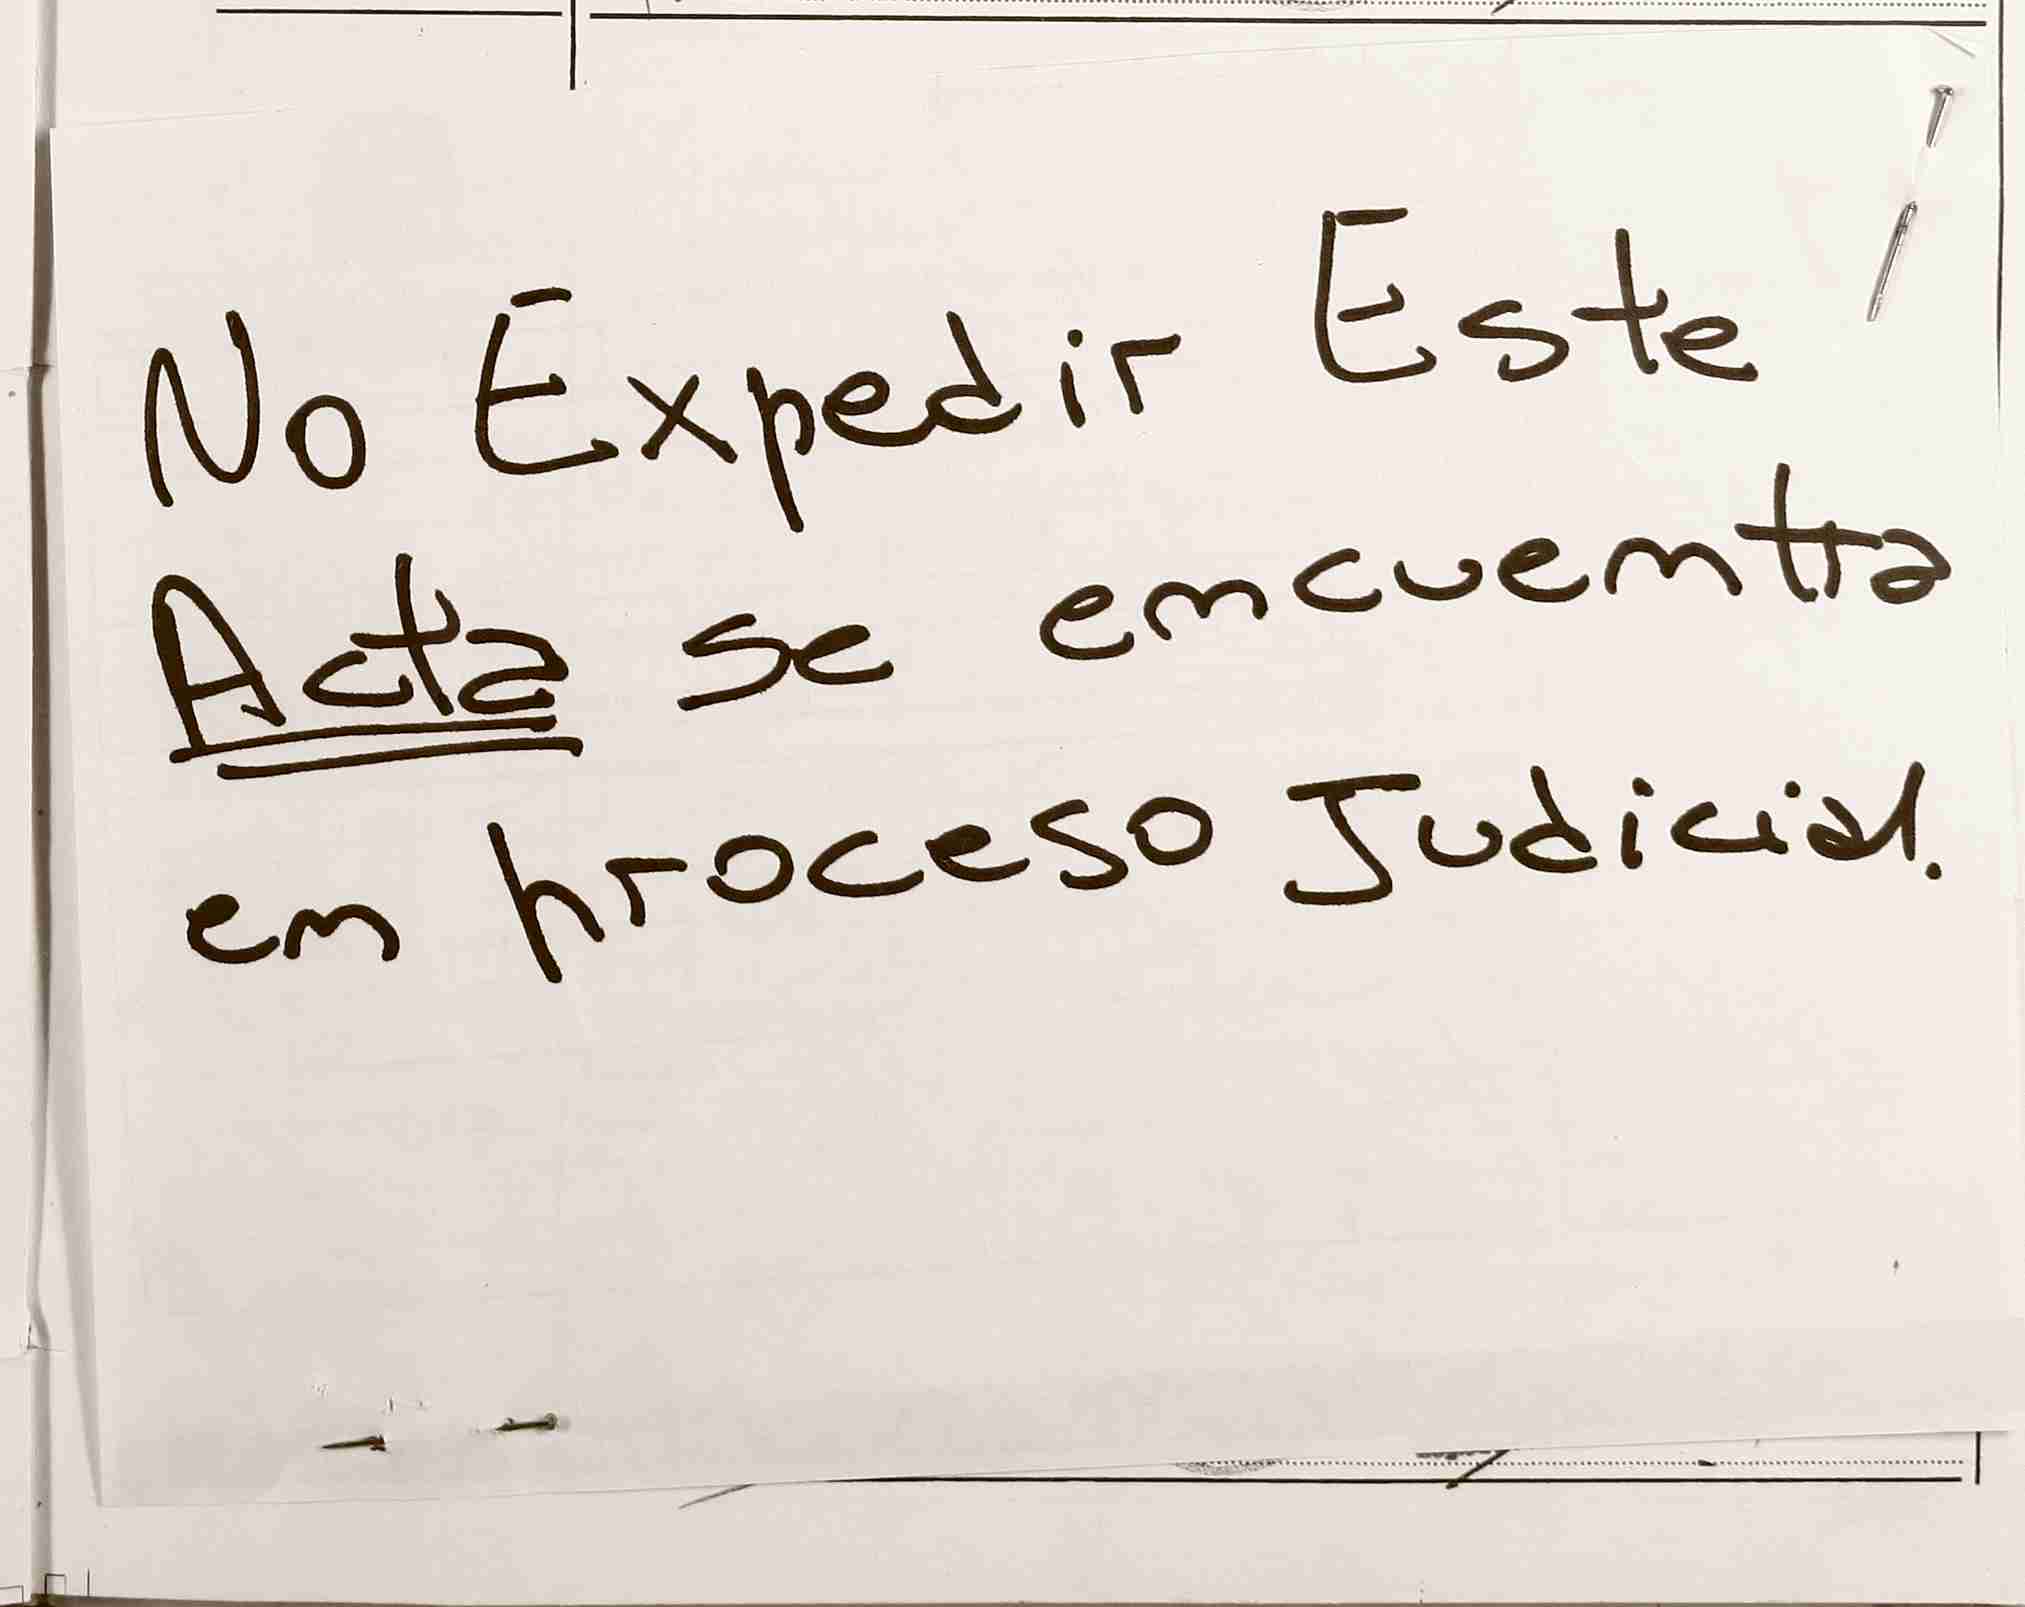 No Expedir Este
Acta se encuentra
en proceso Judicial.